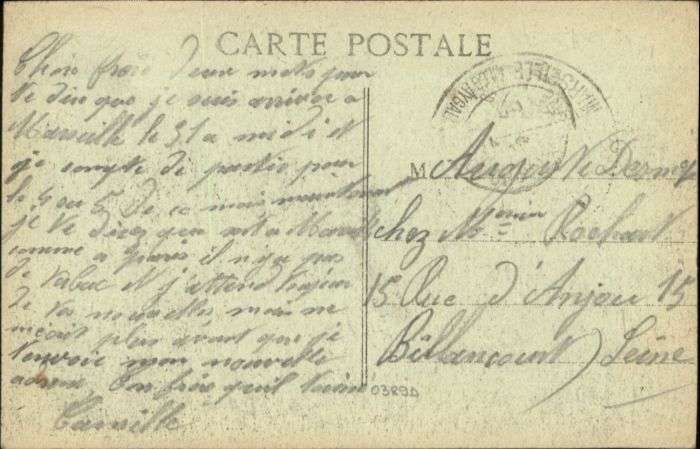 CARTE POSTALE
Cher frère Deux mots pour
te dire que je suis arriver a
Marseille le 31 a midi et
je compte de partir pour
le 4 ou 5 De ce mois maintenant
je te direz quen est a Marseille
comme a Paris il n y a pas
de tabac et j'attend toujour
de tes nouvelles mais ne
mécrit plus avant que je
t'envoie mon nouvelle
adresse Ton frère qui t'aime
Camille
M Auguste
chez Mr Rochart
15 Rue d'Anjou 15
Billancourt Seine
0389D